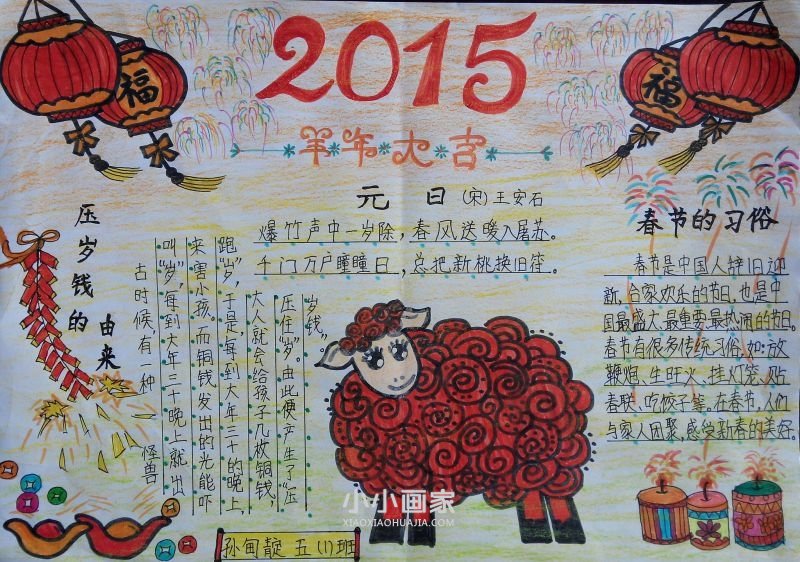 2015
羊年大吉
福
福
元日 (宋)王安石
爆竹声中一岁除,春风送暖入屠苏。
千门万户瞳瞳日,总把新桃换旧符。
压岁钱的
由来
古时候有一种怪兽
叫“岁”,每到大年三十晚上就出
来害小孩。而铜钱发出的光能吓
跑“岁”,于是每到大年三十的晚上,
大人就会给孩子几枚铜钱,
压住“岁”。由此便产生了“压
岁钱”。
春节的习俗
春节是中国人辞旧迎
新,合家欢乐的节日,也是中
国最盛大,最重要最热闹的节日。
春节有很多传统习俗,如:放
鞭炮、生旺火、挂灯笼、贴
春联、吃饺子等。在春节,人们
与家人团聚,感受新春的美好。
小小画家
XIAOXIAOHUAJIA.COM
孙甸靛 五(1)班